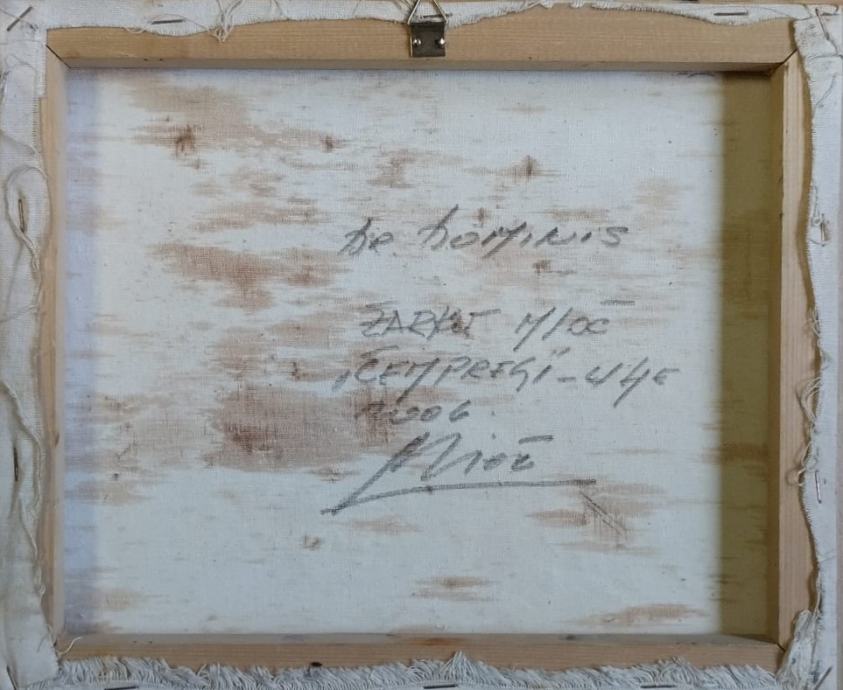 De Dominis
ŽARKO MIOČ
„ČEMPRESI-ULJE
2006.
Mioč